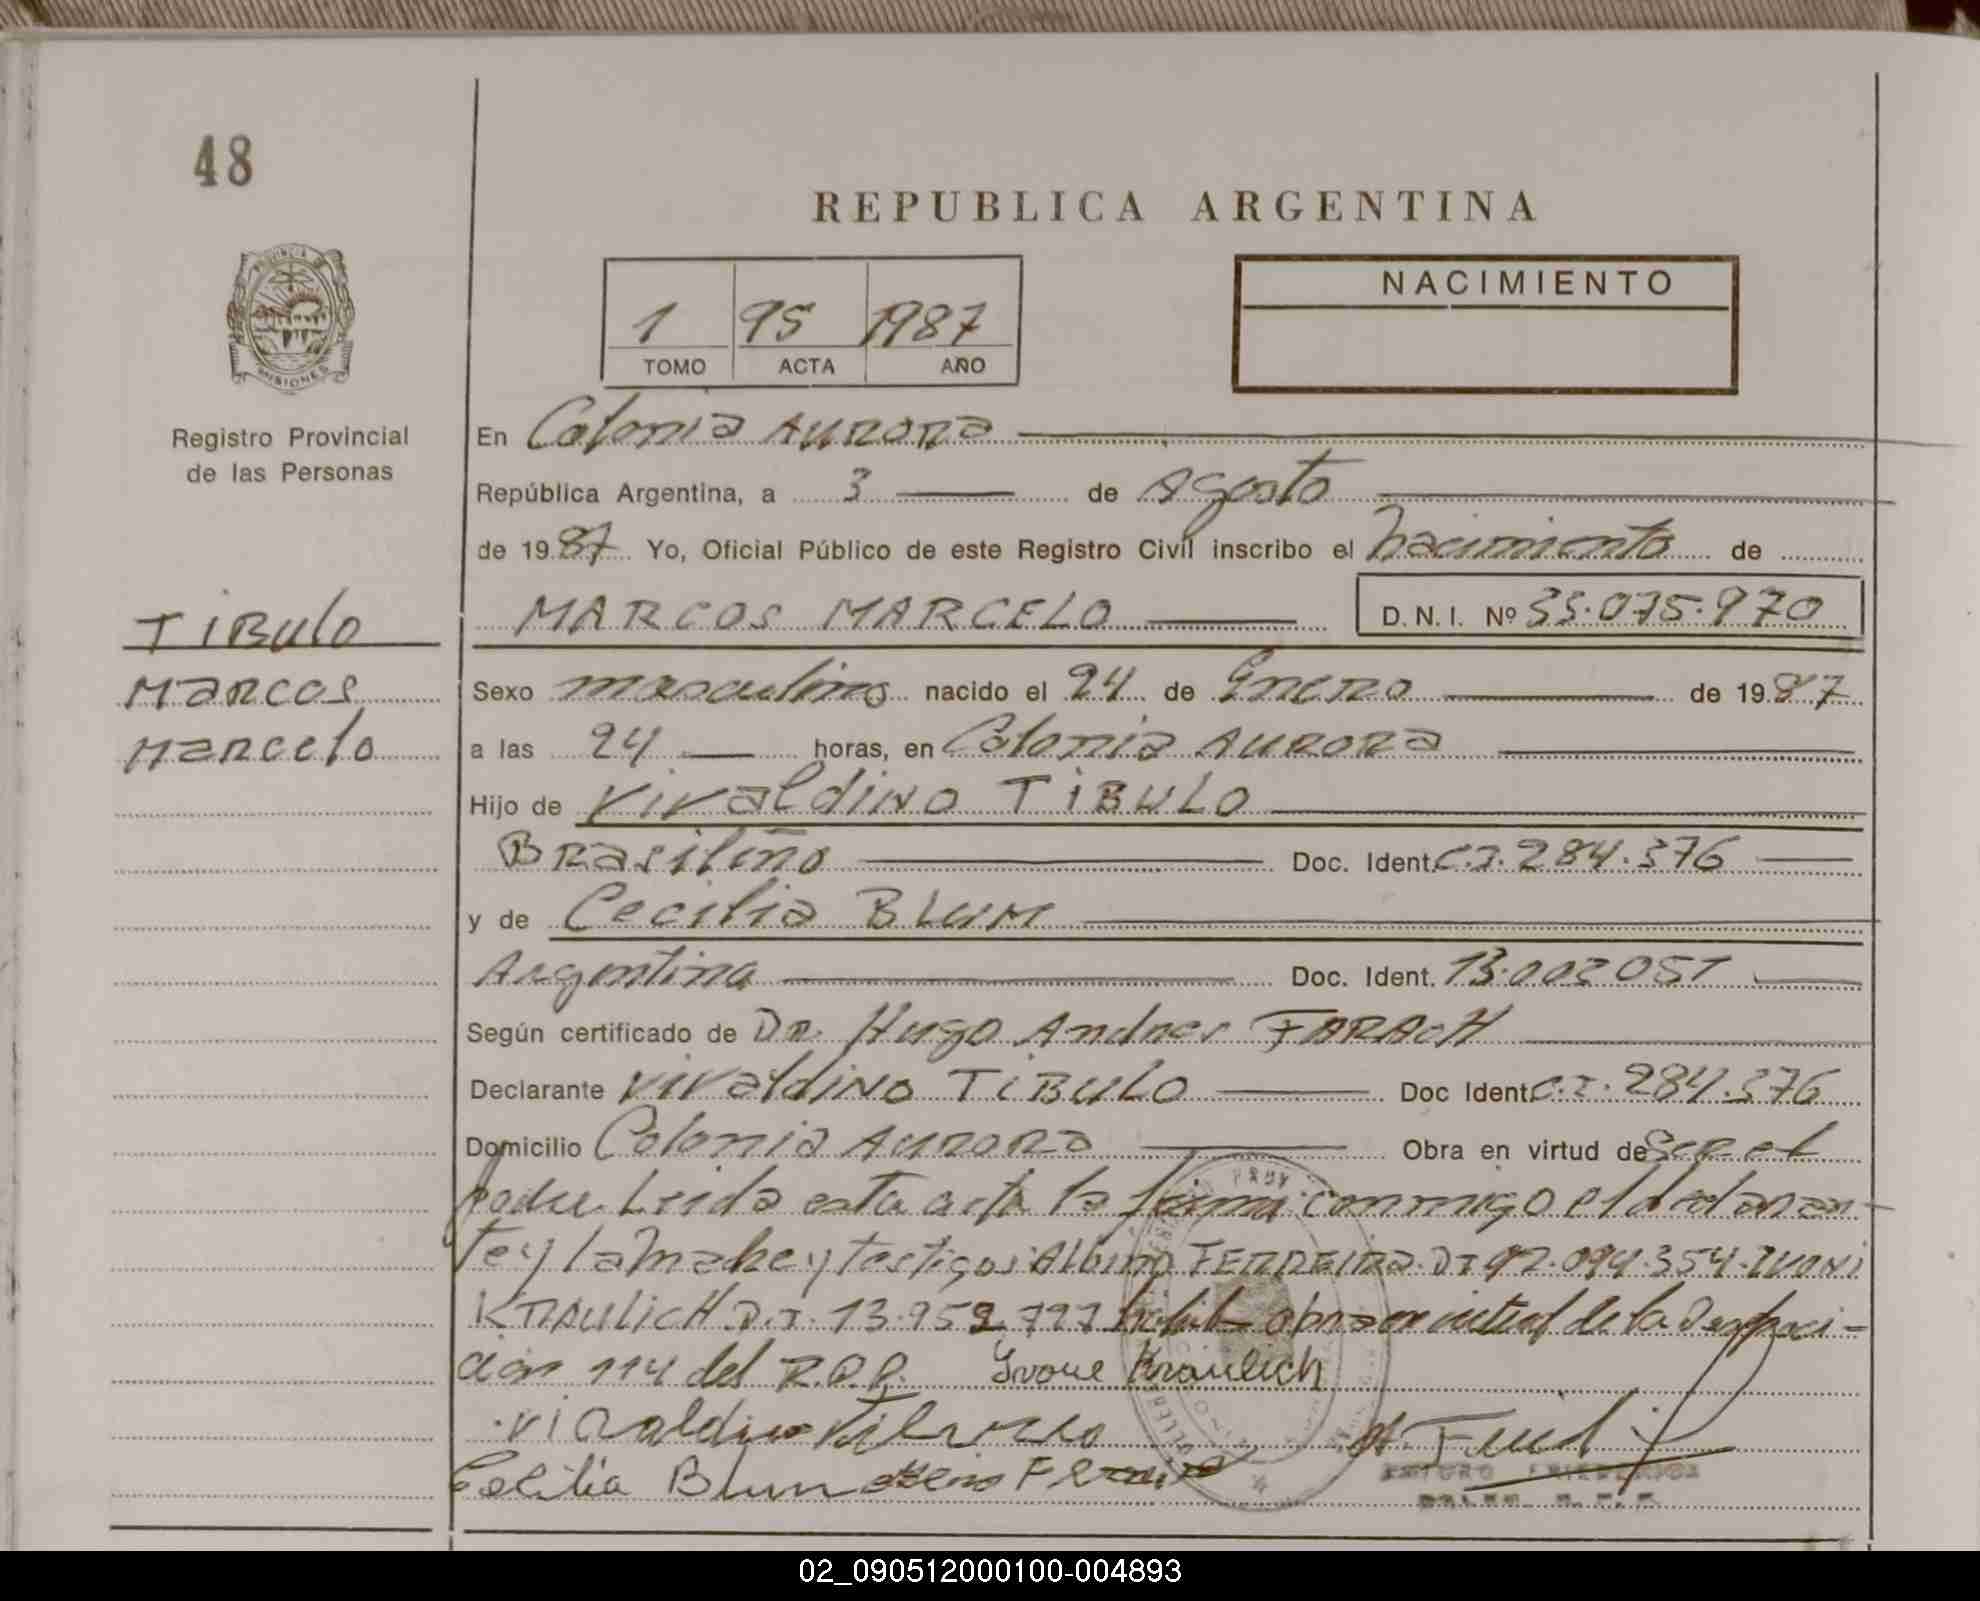 48
REPUBLICA ARGENTINA
NACIMIENTO
1 95 1987
TOMO ACTA AÑO
MISIONES
Registro Provincial
de las Personas
TIBULO
Marcos
Marcelo
En Colonia Aurora
República Argentina, a 3 de Agosto
de 1987 Yo, Oficial Público de este Registro Civil inscribo el Nacimiento de
MARCOS MARCELO D.N.I. Nº 33.075.970
Sexo masculino nacido el 24 de Enero de 1987
a las 24 horas, en Colonia Aurora
Hijo de Vivaldino TIBULO
Brasileño Doc. Ident. C.I. 284.376
y de Cecilia BLUM
Argentina Doc. Ident. 13.002051
Según certificado de Dr. Hugo Andres FARACH
Declarante Vivaldino TIBULO Doc Ident. C.I. 284.376
Domicilio Colonia Aurora Obra en virtud de Ser el
padre. Leida esta acta la firma conmigo el declaran-
te y la Madre y testigos: Albino FERREIRA. DI 92.094.354. IVONI
KRAULICH D.I. 13.952.727 obra en virtud de la
ción 114 del R.P.P. Ivone Kraulich
Vivaldino Tibulo
Cecilia Blum
02_090512000100-004893